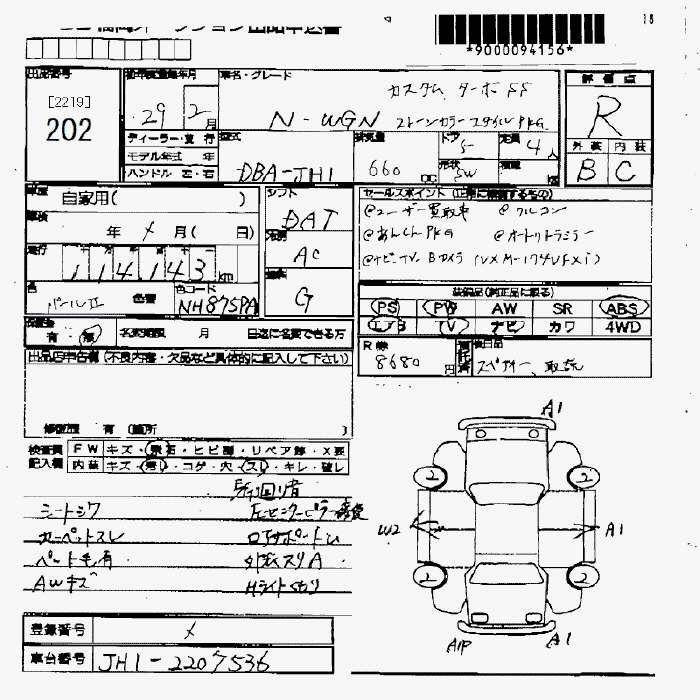 18
*9000094156*
出品番号
[2219]
202
初年度登録年月
29年 2月
車名・グレード
カスタム ターボ SS
N-WGN 2トーンカラースタイル PKG
評価点
R
外装 内装
B C
ディーラー・並行
モデル年式 年
ハンドル 左・右
型式
DBA-JH1
排気量
660 CC
ドア
5
形状
SW
定員
4人
積載
車歴 自家用( )
車検 年 メ 月( 日)
走行
114143 km
色 パールII 色替 色コード NH875PA
シフト
DAT
冷房
AC
燃料
G
セールスポイント
@ユーザー買取車 @クルコン
@あんしんPKG @オートリトラミラー
@ナビTV Bカメラ (VXM-174VFXi)
装備品(純正品に限る)
PS PW AW SR ABS
エアB V ナビ カワ 4WD
有・無 名変期限 月 日迄に名変できる方
R券
8680円
後日品
スペアキー、取説
出品店申告欄(不良内容・欠品など具体的に記入して下さい)
修復歴 有 (箇所 )
検査員記入欄
FW キズ・飛石・ヒビ割・リペア跡・X要
内装 キズ・汚・コゲ・穴・スレ・キレ・破レ
シートシワ
カーペットスレ
ペット毛有
AWキズ
Fセンターピラー修復
ロアサポートU
外板スリA
Hライトくもり
A1
2 2
W2 A1
2 2
A1P A1
登録番号 メ
車台番号 JH1-2207536